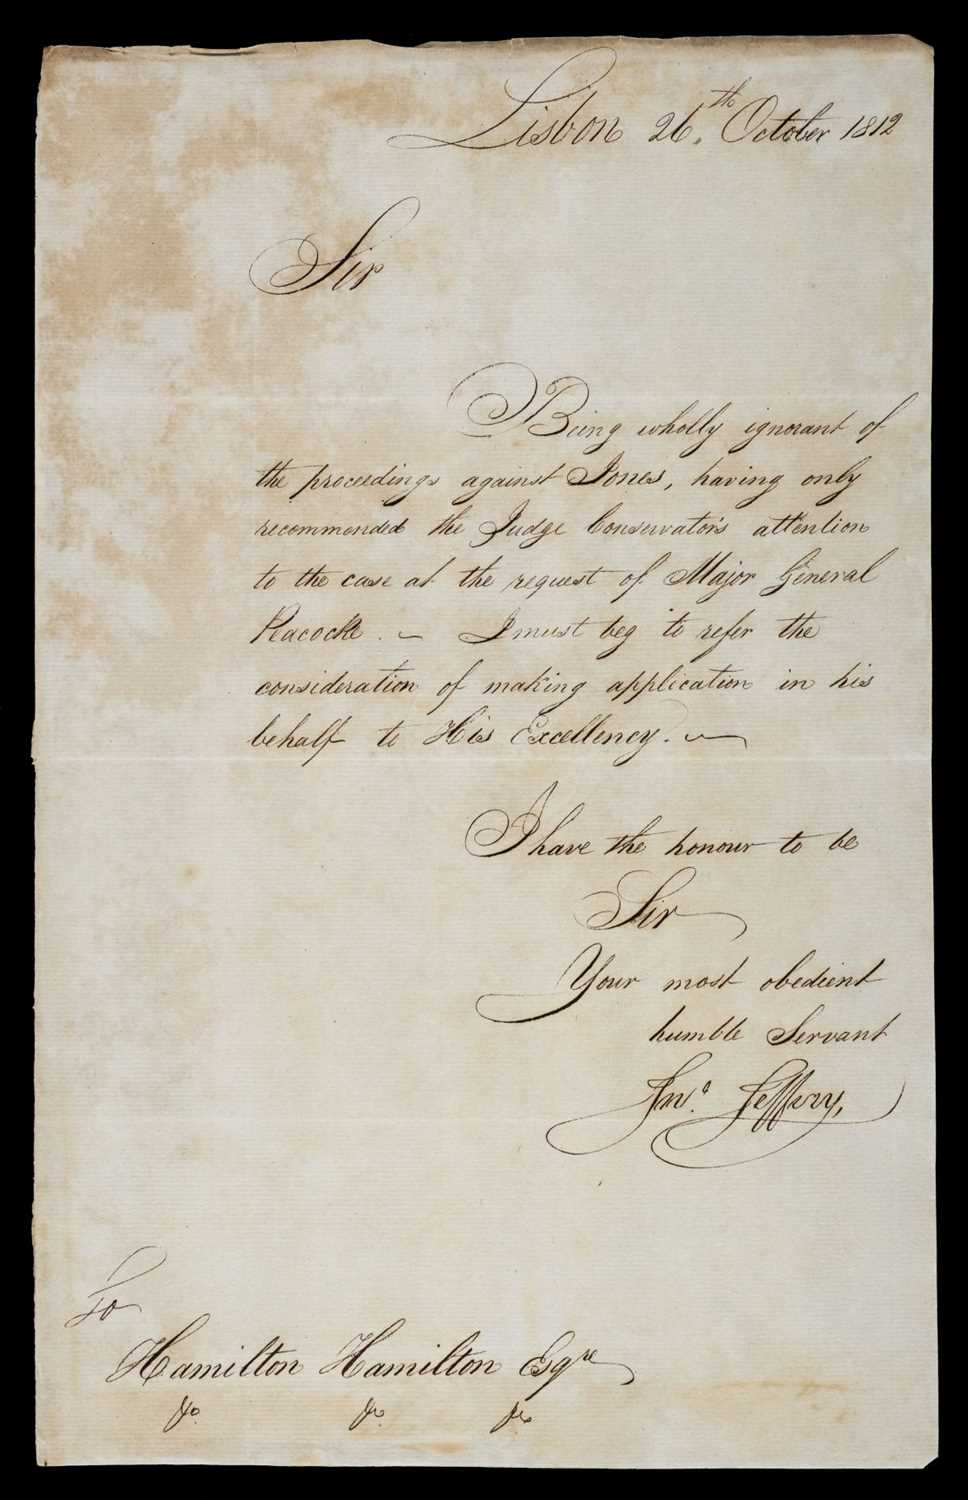 Lisbon 26.th October 1812
Sir
Being wholly ignorant of
the proceedings against Jones, having only
recommended the Judge Conservator's attention
to the case at the request of Major General
Peacocke. — I must beg to refer the
consideration of making application in his
behalf to His Excellency. —
I have the honour to be
Sir
Your most obedient
humble Servant
Jno. Jeffery,
To
Hamilton Hamilton Esqre
&c. &c. &c.